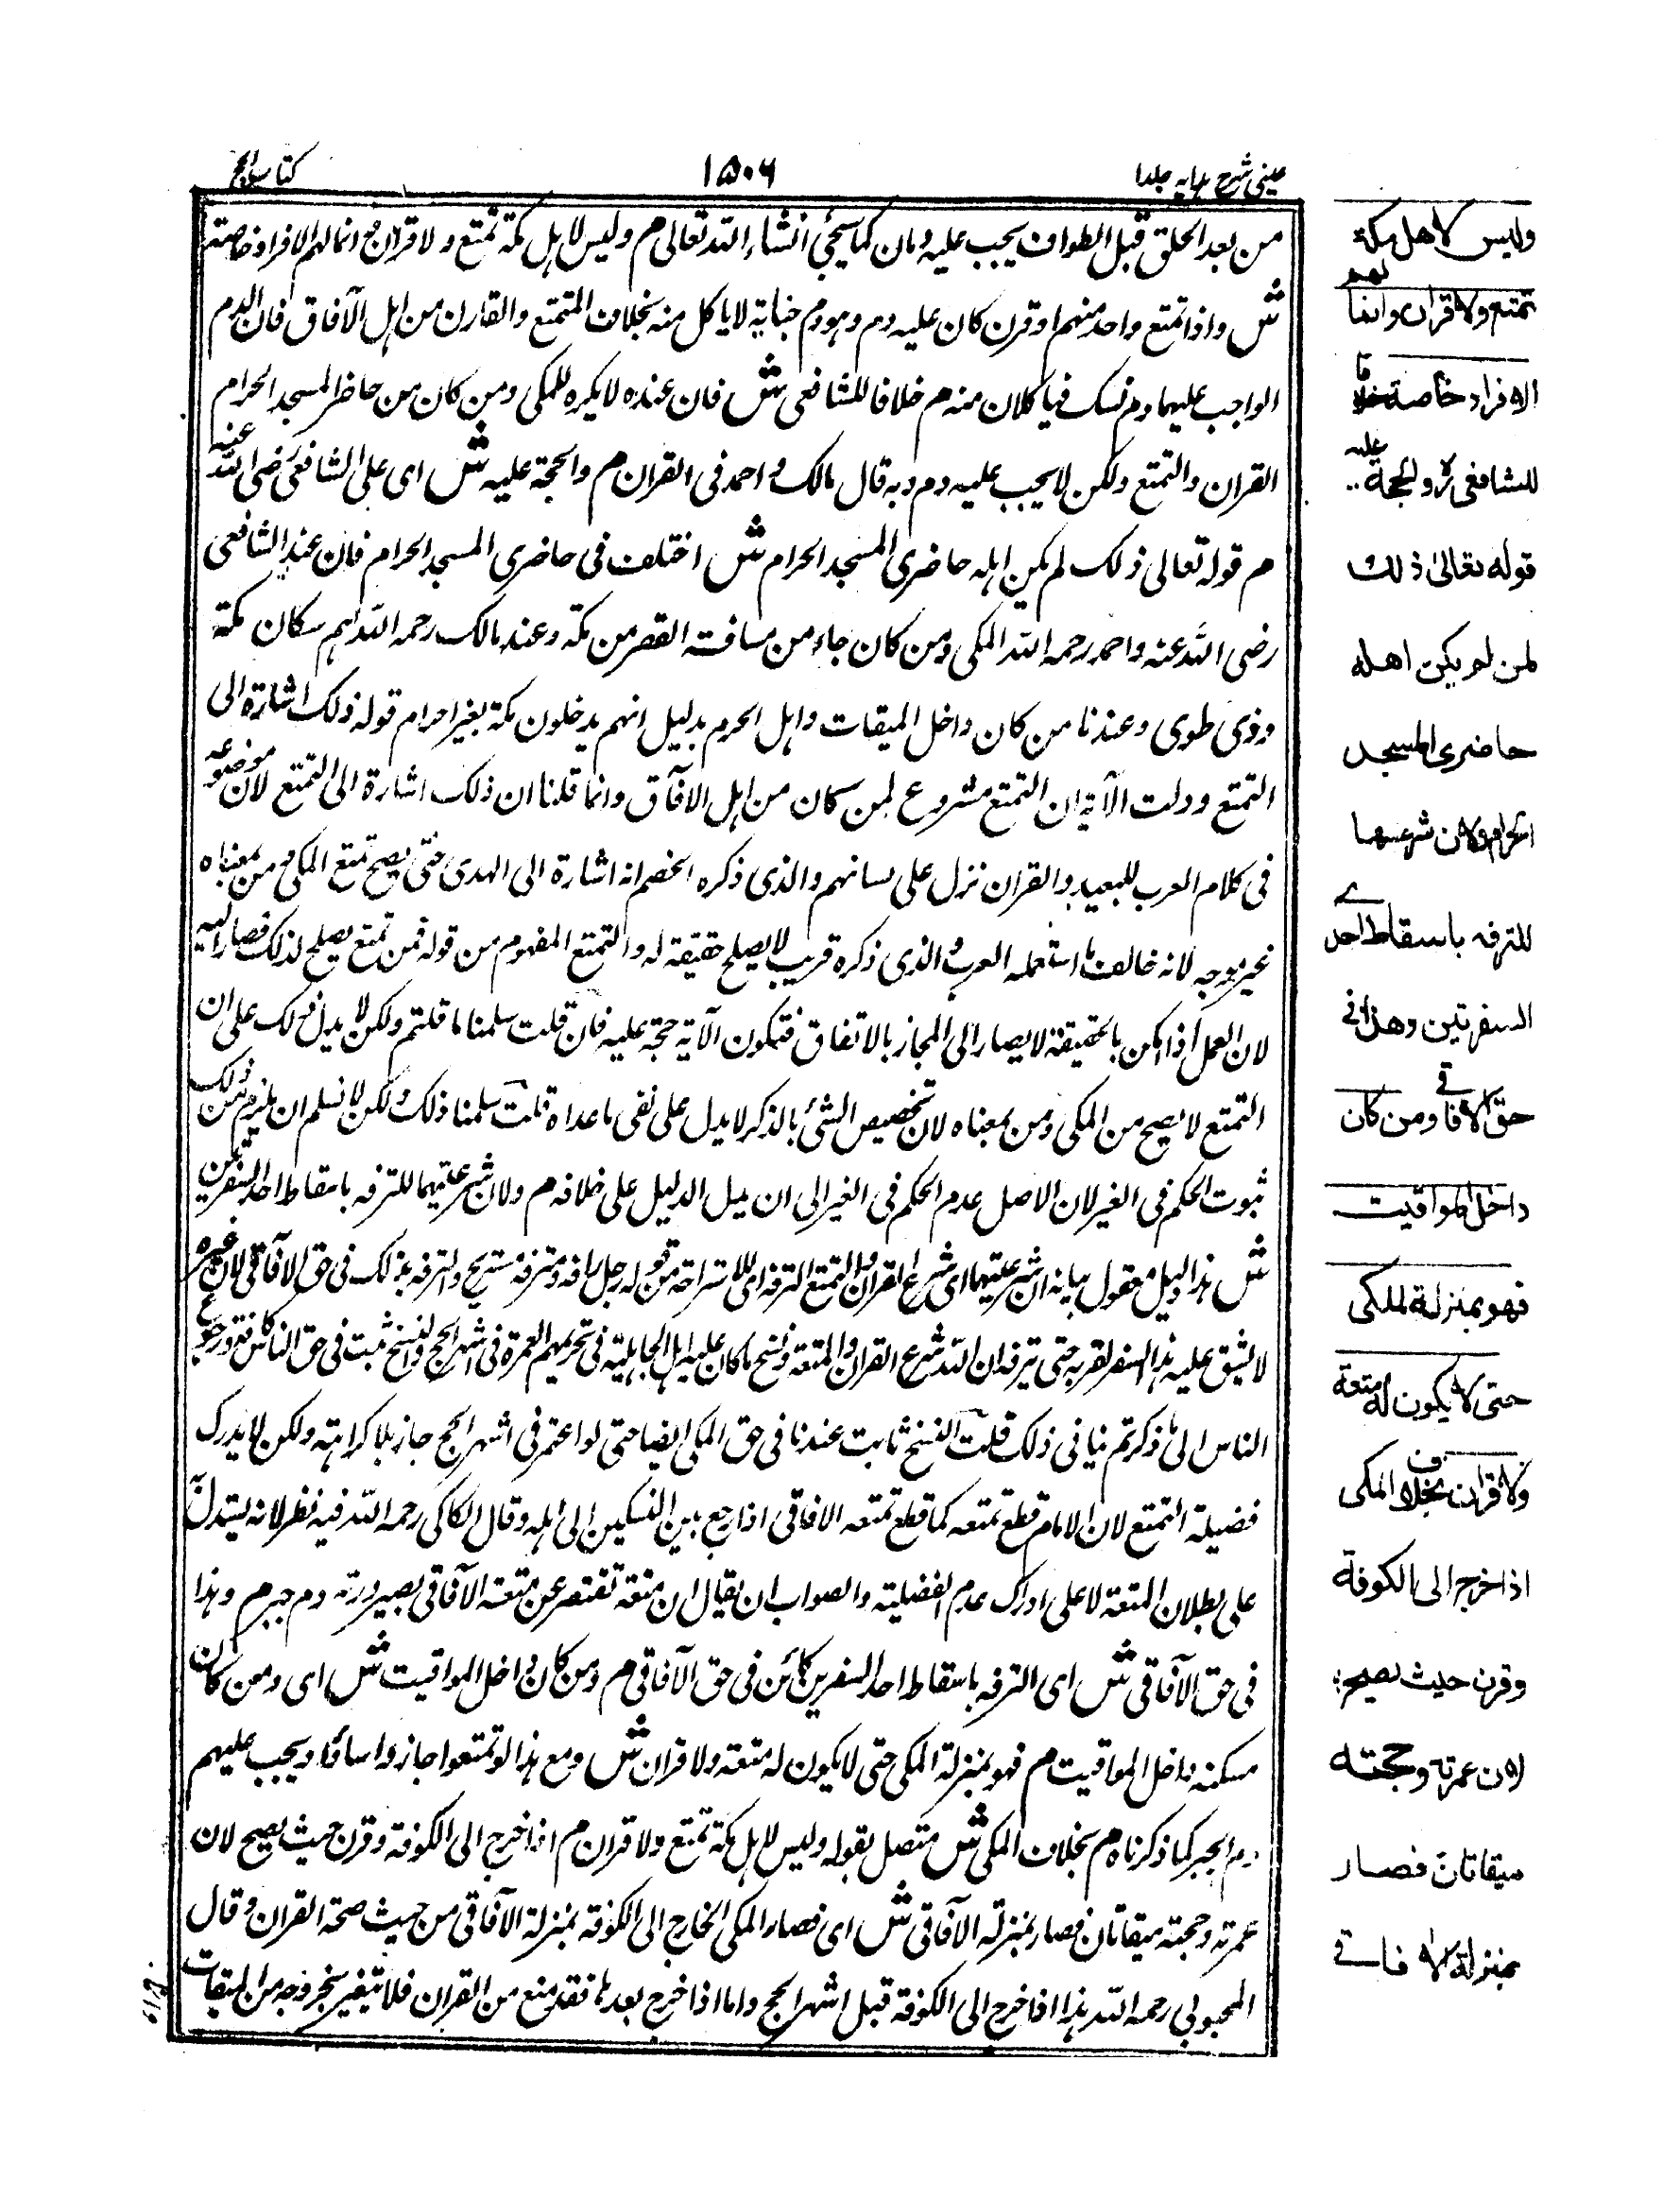 عينى شرح هدايه جلد ا
١٥٠٦
كتاب الحج
من بعد الحلق قبل الطواف يجب عليه دمان كما سيجئ انشاء الله تعالى م وليس لاهل مكة تمتع ولا قران م انما لهم الافراد خاصة
ش واذا تمتع واحد منهم او قرن كان عليه دم وهو دم جناية لا ياكل منه بخلاف المتمتع والقارن من اهل الآفاق فان الدم
الواجب عليهما دم نسك فياكلان منه م خلافا للشافعى ش فان عنده لا يكره للمكى ومن كان من حاضر المسجد الحرام
القران والتمتع ولكن لا يجب عليه دم وبه قال مالك و احمد فى القران م والحجة عليه ش اى على الشافعى رضى الله عنه
م قوله تعالى ذلك لم يكن اهله حاضرى المسجد الحرام ش اختلف فى حاضرى المسجد الحرام فان عند الشافعى
رضى الله عنه واحمد رحمه الله المكى ومن كان جاء من مسافة القصر من مكة وعند مالك رحمه الله هم سكان مكة
وذى طوى وعندنا من كان داخل الميقات واهل الحرم بدليل انهم يدخلون مكة بغير احرام قوله ذلك اشارة الى
التمتع ودلت الآية ان التمتع مشروع لمن كان من اهل الافاق وانما قلنا ان ذلك اشارة الى التمتع لان موضوعه
فى كلام العرب للبعيد والقران نزل على لسانهم والذى ذكره الخصم انه اشارة الى الهدى حتى يصح تمتع المكى ومن بمعناه
غير موجه لانه خالف ما استعمله العرب و الذى ذكره قريب لا يصلح حقيقة له والتمتع المفهوم من قوله فمن تمتع يصلح لذلك فصار اليه
لان العمل اذا امكن بالحقيقة لا يصار الى المجاز بالاتفاق فتكون الآية حجة عليه فان قلت سلمنا ما قلتم ولكن لا يدل ذلك على ان
التمتع لا يصح من المكى ومن بمعناه لان تخصيص الشئ بالذكر لا يدل على نفى ما عداه قلت سلمنا ذلك ولكن لا نسلم ان يلزم من ذلك
ثبوت الحكم فى الغير لان الاصل عدم الحكم فى الغير الى ان يدل الدليل على خلافه م ولان شرعيتهما للترفه باسقاط احد السفرين
ش هذا دليل معقول بيانه ان شرعيتهما اى شرع القران والتمتع الترفه اى للاستراحة من قوله رجل رافه ومترفه مستريح والترفه بذلك فى حق الآفاقى لان غيره
لا يشق عليه هذا السفر لقربه حتى يترفه ان الله شرع القران والمتعة ونسخ ما كان عليه اهل الجاهلية فى تحريمهم العمرة فى اشهر الحج والنسخ ثبت فى حق الناس كافة ورجوع
الناس الى ما ذكرتم ينافى ذلك قلت النسخ ثابت عندنا فى حق المكى ايضا حتى لو اعتمر فى اشهر الحج جاز بلا كراهته ولكن لا يدرك
فضيلة التمتع لان الالمام قطع تمتعه كما قطع تمتعه الافاقى اذا رجع بين النسكين الى اهله وقال الكاكى رحمه الله فيه نظر لانه يستدل
على بطلان المتعة لا على ادراك عدم الفضيلة والصواب ان يقال ان متعته تقتصر عن متعة الآفاقى بصيرورته دم جبر م وهذا
فى حق الآفاقى ش اى الترفه باسقاط احد السفرين كائن فى حق الآفاقى م ومن كان داخل المواقيت ش اى ومن كان
مسكنه داخل المواقيت م فهو بمنزلة المكى حتى لا يكون له متعة ولا قران ش ومع هذا لو تمتعوا جاز واساؤا ويجب عليهم
دم الجبر كما ذكرنا م بخلاف المكى ش متصل بقوله وليس لاهل مكة تمتع ولا قران م اذا خرج الى الكوفة وقرن حيث يصح لان
عمرته وحجته ميقاتان فصار بمنزلة الآفاقى ش اى فصار المكى الخارج الى الكوفة بمنزلة الآفاقى من حيث صحة القران وقال
المحبوبى رحمه الله هذا اذا خرج الى الكوفة قبل اشهر الحج واما اذا خرج بعدها فقد منع من القران فلا يتغير بخروجه من الميقات
وليس لاهل مكة
تمتع ولا قران وانما لهم
الافراد خاصة خلافا
للشافعى والحجة عليه
قوله تعالى ذلك
لمن لم يكن اهله
حاضرى المسجد
الحرام ولان شرعيتهما
للترفه باسقاط احدى
السفرتين وهذا فى
حق الافاقى ومن كان
داخل المواقيت
فهو بمنزلة المكى
حتى لا يكون له متعة
ولا قران بخلاف المكى
اذا خرج الى الكوفة
وقرن حيث يصح
لان عمرته وحجته
ميقاتان فصار
بمنزلة الافاقى